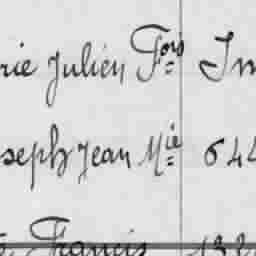 rie Julien Fois Im
seph Jean Mie 644
Francis 132